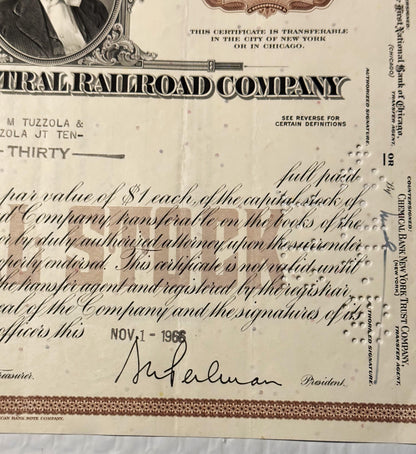 THIS CERTIFICATE IS TRANSFERABLE
IN THE CITY OF NEW YORK
OR IN CHICAGO.
TRAL RAILROAD COMPANY
M TUZZOLA &
ZOLA JT TEN-
SEE REVERSE FOR
CERTAIN DEFINITIONS
THIRTY
full paid
par value of $1 each, of the capital stock of
d Company, transferable on the books of the
or by duly authorized attorney, upon the surrender
operly endorsed. This certificate is not valid until
he transfer agent and registered by the registrar.
eal of the Company and the signatures of its
officers this NOV 1 - 1966
Treasurer.
A E Perlman
President.
BANK NOTE COMPANY.
First National Bank of Chicago,
(CHICAGO)
TRANSFER AGENT,
AUTHORIZED SIGNATURE.
OR
By
COUNTERSIGNED:
CHEMICAL BANK NEW YORK TRUST COMPANY,
(NEW YORK)
TRANSFER AGENT,
AUTHORIZED SIGNATURE.